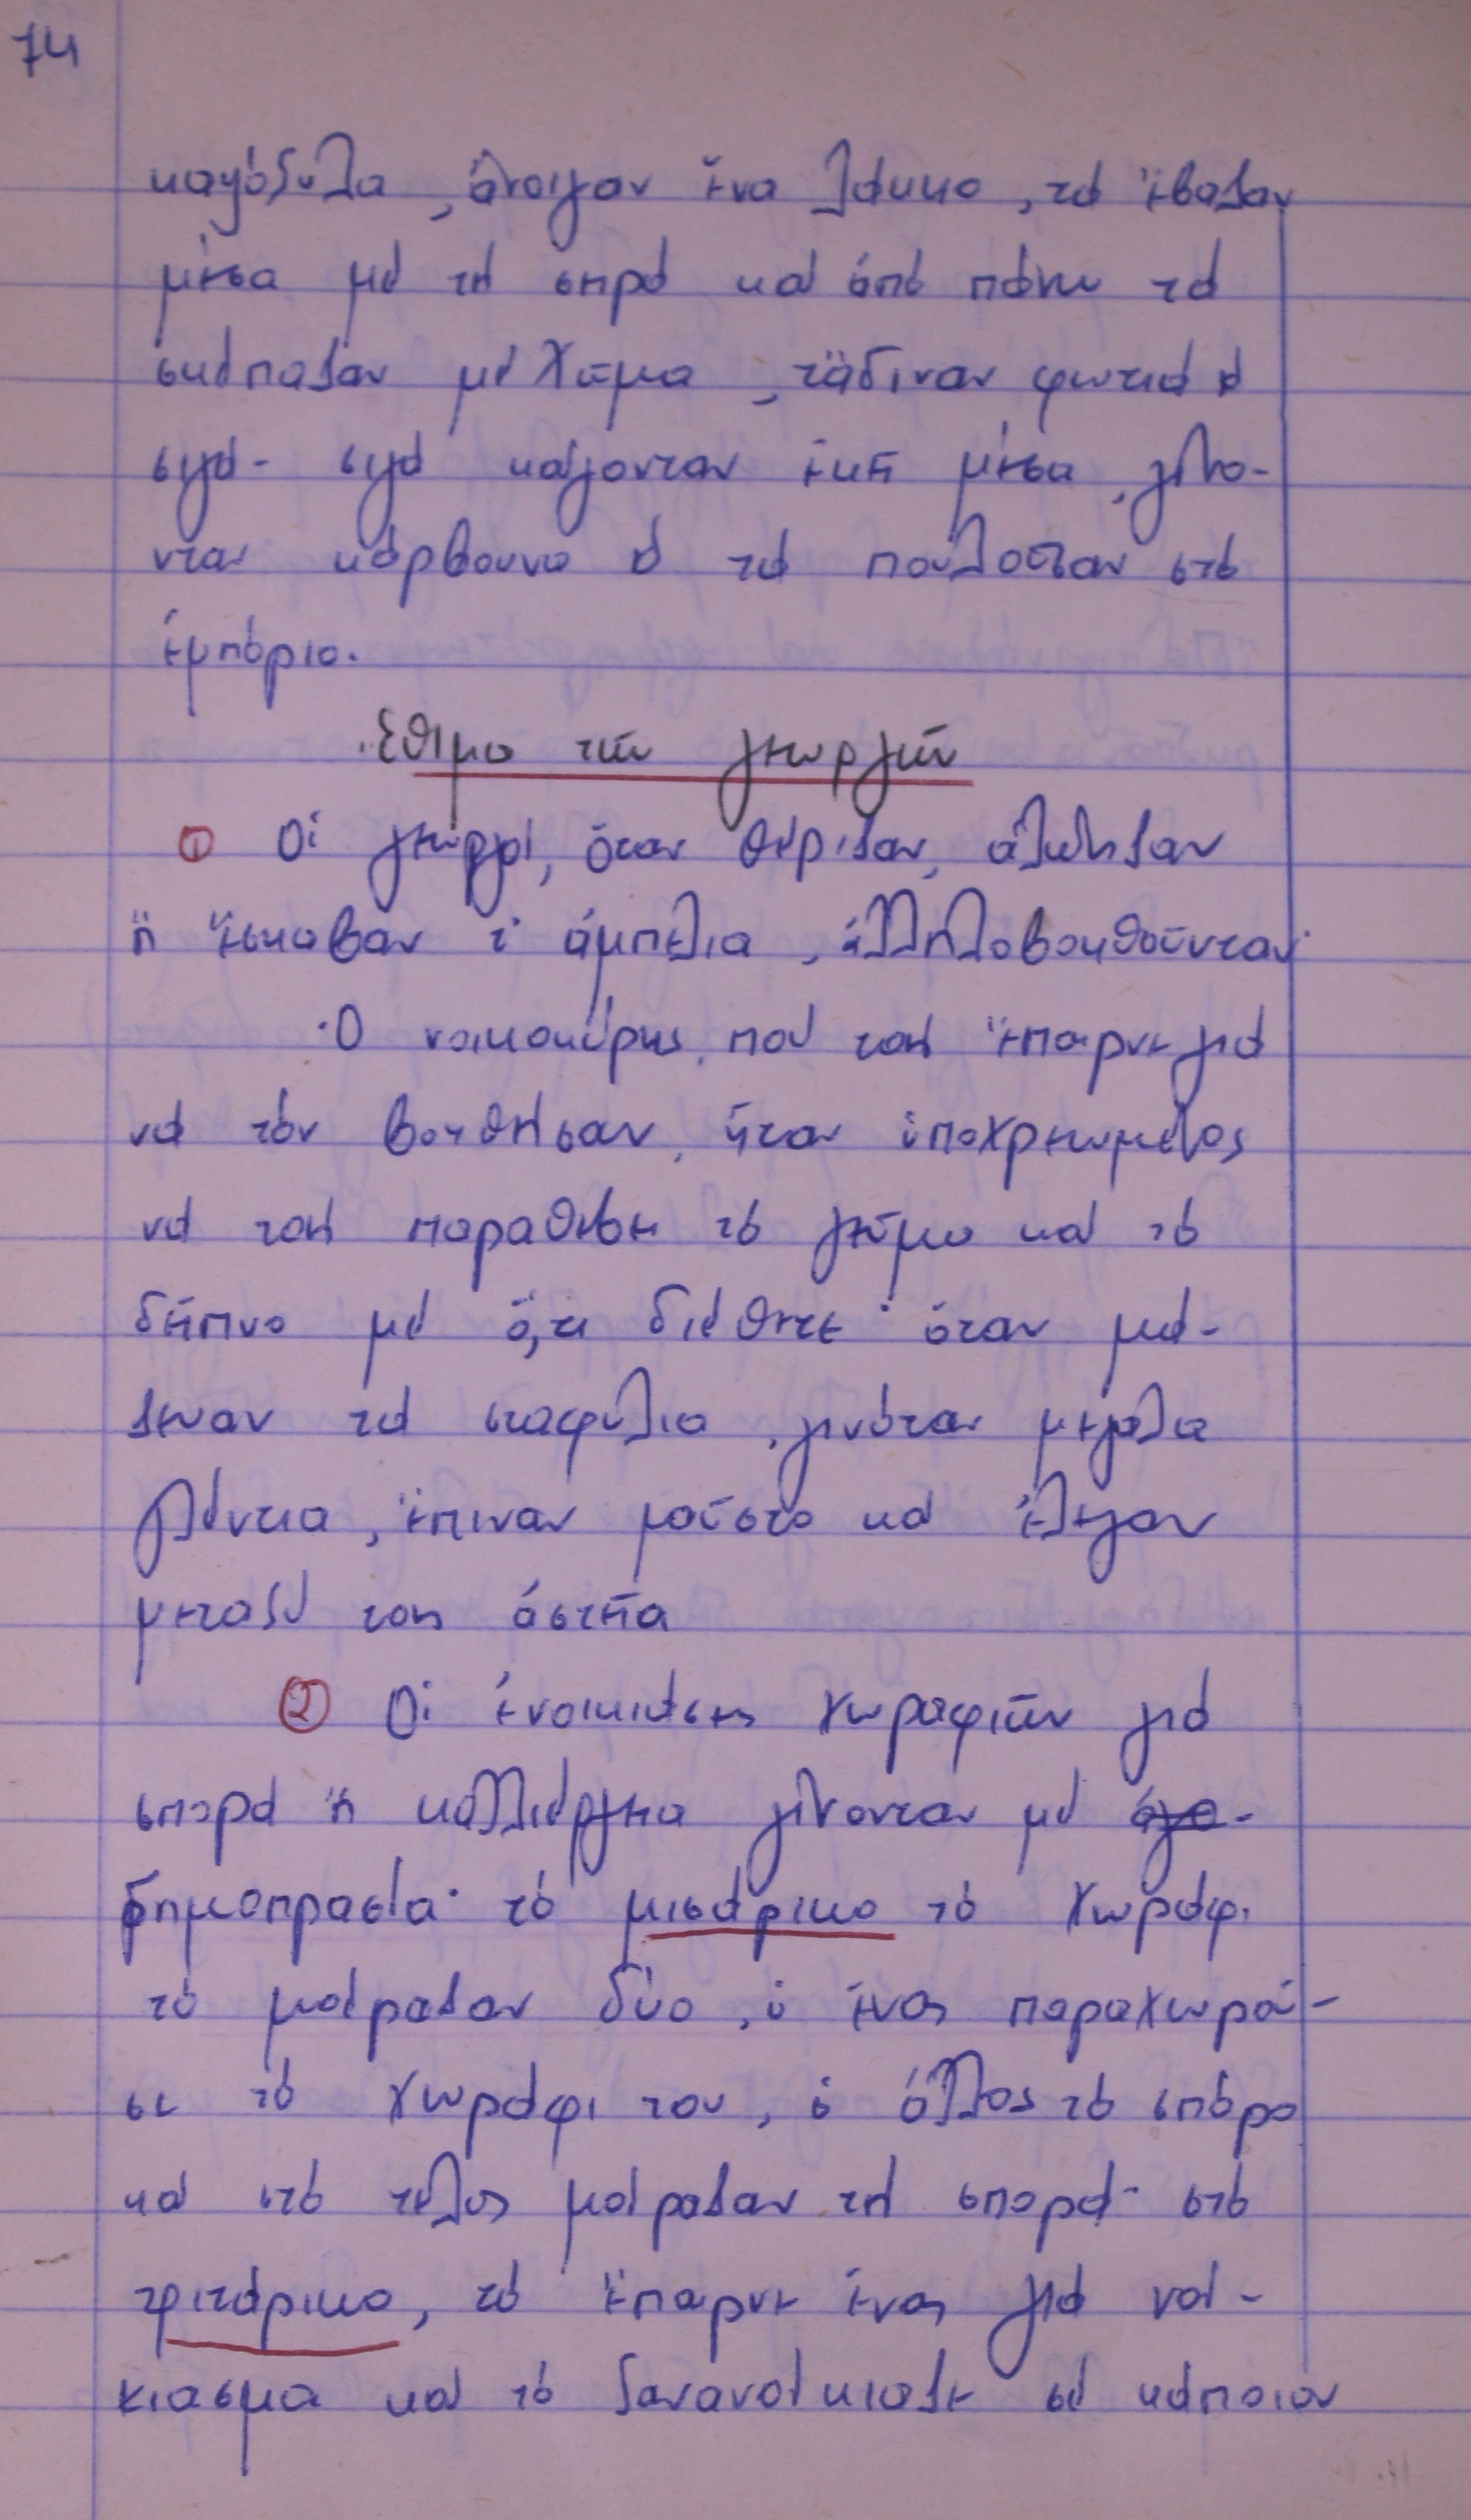 74
καψόξυλα, ἄνοιγαν ἕνα λάκκο, τὰ ἔβαζαν
μέσα μὲ τὴ σειρὰ καὶ ἀπὸ πάνω τὰ
σκέπαζαν μὲ χῶμα, τἄδιναν φωτιὰ κ
σιγά- σιγὰ καίγονταν ἐκεῖ μέσα, γίνο-
νταν κάρβουνο κ τὰ πουλοῦσαν στὸ
ἐμπόριο.
Ἔθιμα τῶν γεωργῶν
① Οἱ γεωργοί, ὅταν θέριζαν, ἁλώνιζαν
ἢ ἔσκαβαν τ' ἀμπέλια, ἀλληλοβοηθοῦνταν·
Ὁ νοικοκύρης, ποὺ τοὺς ἔπαιρνε γιὰ
νὰ τὸν βοηθήσουν, ἦταν ὑποχρεωμένος
νὰ τοὺς παραθέσει τὸ γεῦμα καὶ τὸ
δεῖπνο μὲ ὅ,τι διέθετε· ὅταν μά-
ζευαν τὰ σταφύλια, γινόταν μεγάλα
γλέντια, ἔπιναν μοῦστο καὶ ἔλεγαν
μεταξύ τους ἀστεῖα
② Οἱ ἐνοικιάσεις χωραφιῶν γιὰ
σπορὰ ἢ καλλιέργεια γίνονταν μὲ
δημοπρασία· τὸ μισάρικο τὸ χωράφι
τὸ μοίραζαν δύο, ὁ ἕνας παραχωροῦ-
σε τὸ χωράφι του, ὁ ἄλλος τὸ σπόρο
καὶ στὸ τέλος μοίραζαν τὴ σπορά· στὸ
τριτάρικο, τὸ ἔπαιρνε ἕνας γιὰ νοί-
κιασμα καὶ τὸ ξανανοίκιαζε σὲ κάποιον